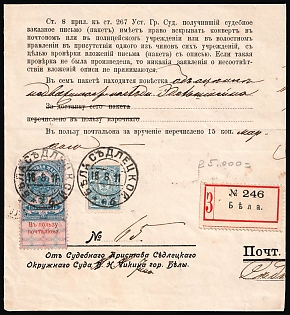 Ст. 8 прил. къ ст. 267 Уст. Гр. Суд. получившій судебное
заказное письмо (пакетъ) имѣетъ право вскрыть конвертъ въ
почтовомъ или въ полицейскомъ учрежденіи или въ волостномъ
правленіи въ присутствіи одного изъ чиновъ сихъ учрежденій, съ
цѣлью провѣрки вложенія письма (пакета) съ описью. Если такая
провѣрка не была произведена, то никакія заявленія о несоотвѣт-
ствіи вложенія описи не принимаются.
Въ семъ пакетѣ находится повѣстка объ
За доставку сего пакета
перечислено въ пользу нарочнаго
Въ пользу почтальона за врученіе перечислено 15 коп. мар-
БѢЛА СѢДЛЕЦКОЙ
18 8 11
БѢЛА СѢДЛЕЦКОЙ
18 8 11
25.000=
З
№ 246
Бѣла.
Въ пользу
почтальона.
№ 65.
Почт.
Отъ Судебнаго Пристава Сѣдлецкаго
Окружнаго Суда В. И. Чикица гор. Бѣлы.